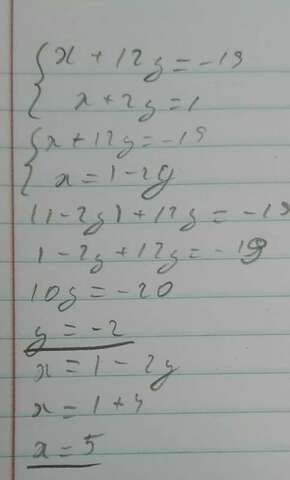 x + 12y = -19
x + 2y = 1
x + 12y = -19
x = 1 - 2y
(1 - 2y) + 12y = -19
1 - 2y + 12y = -19
10y = -20
y = -2
x = 1 - 2y
x = 1 + 4
x = 5